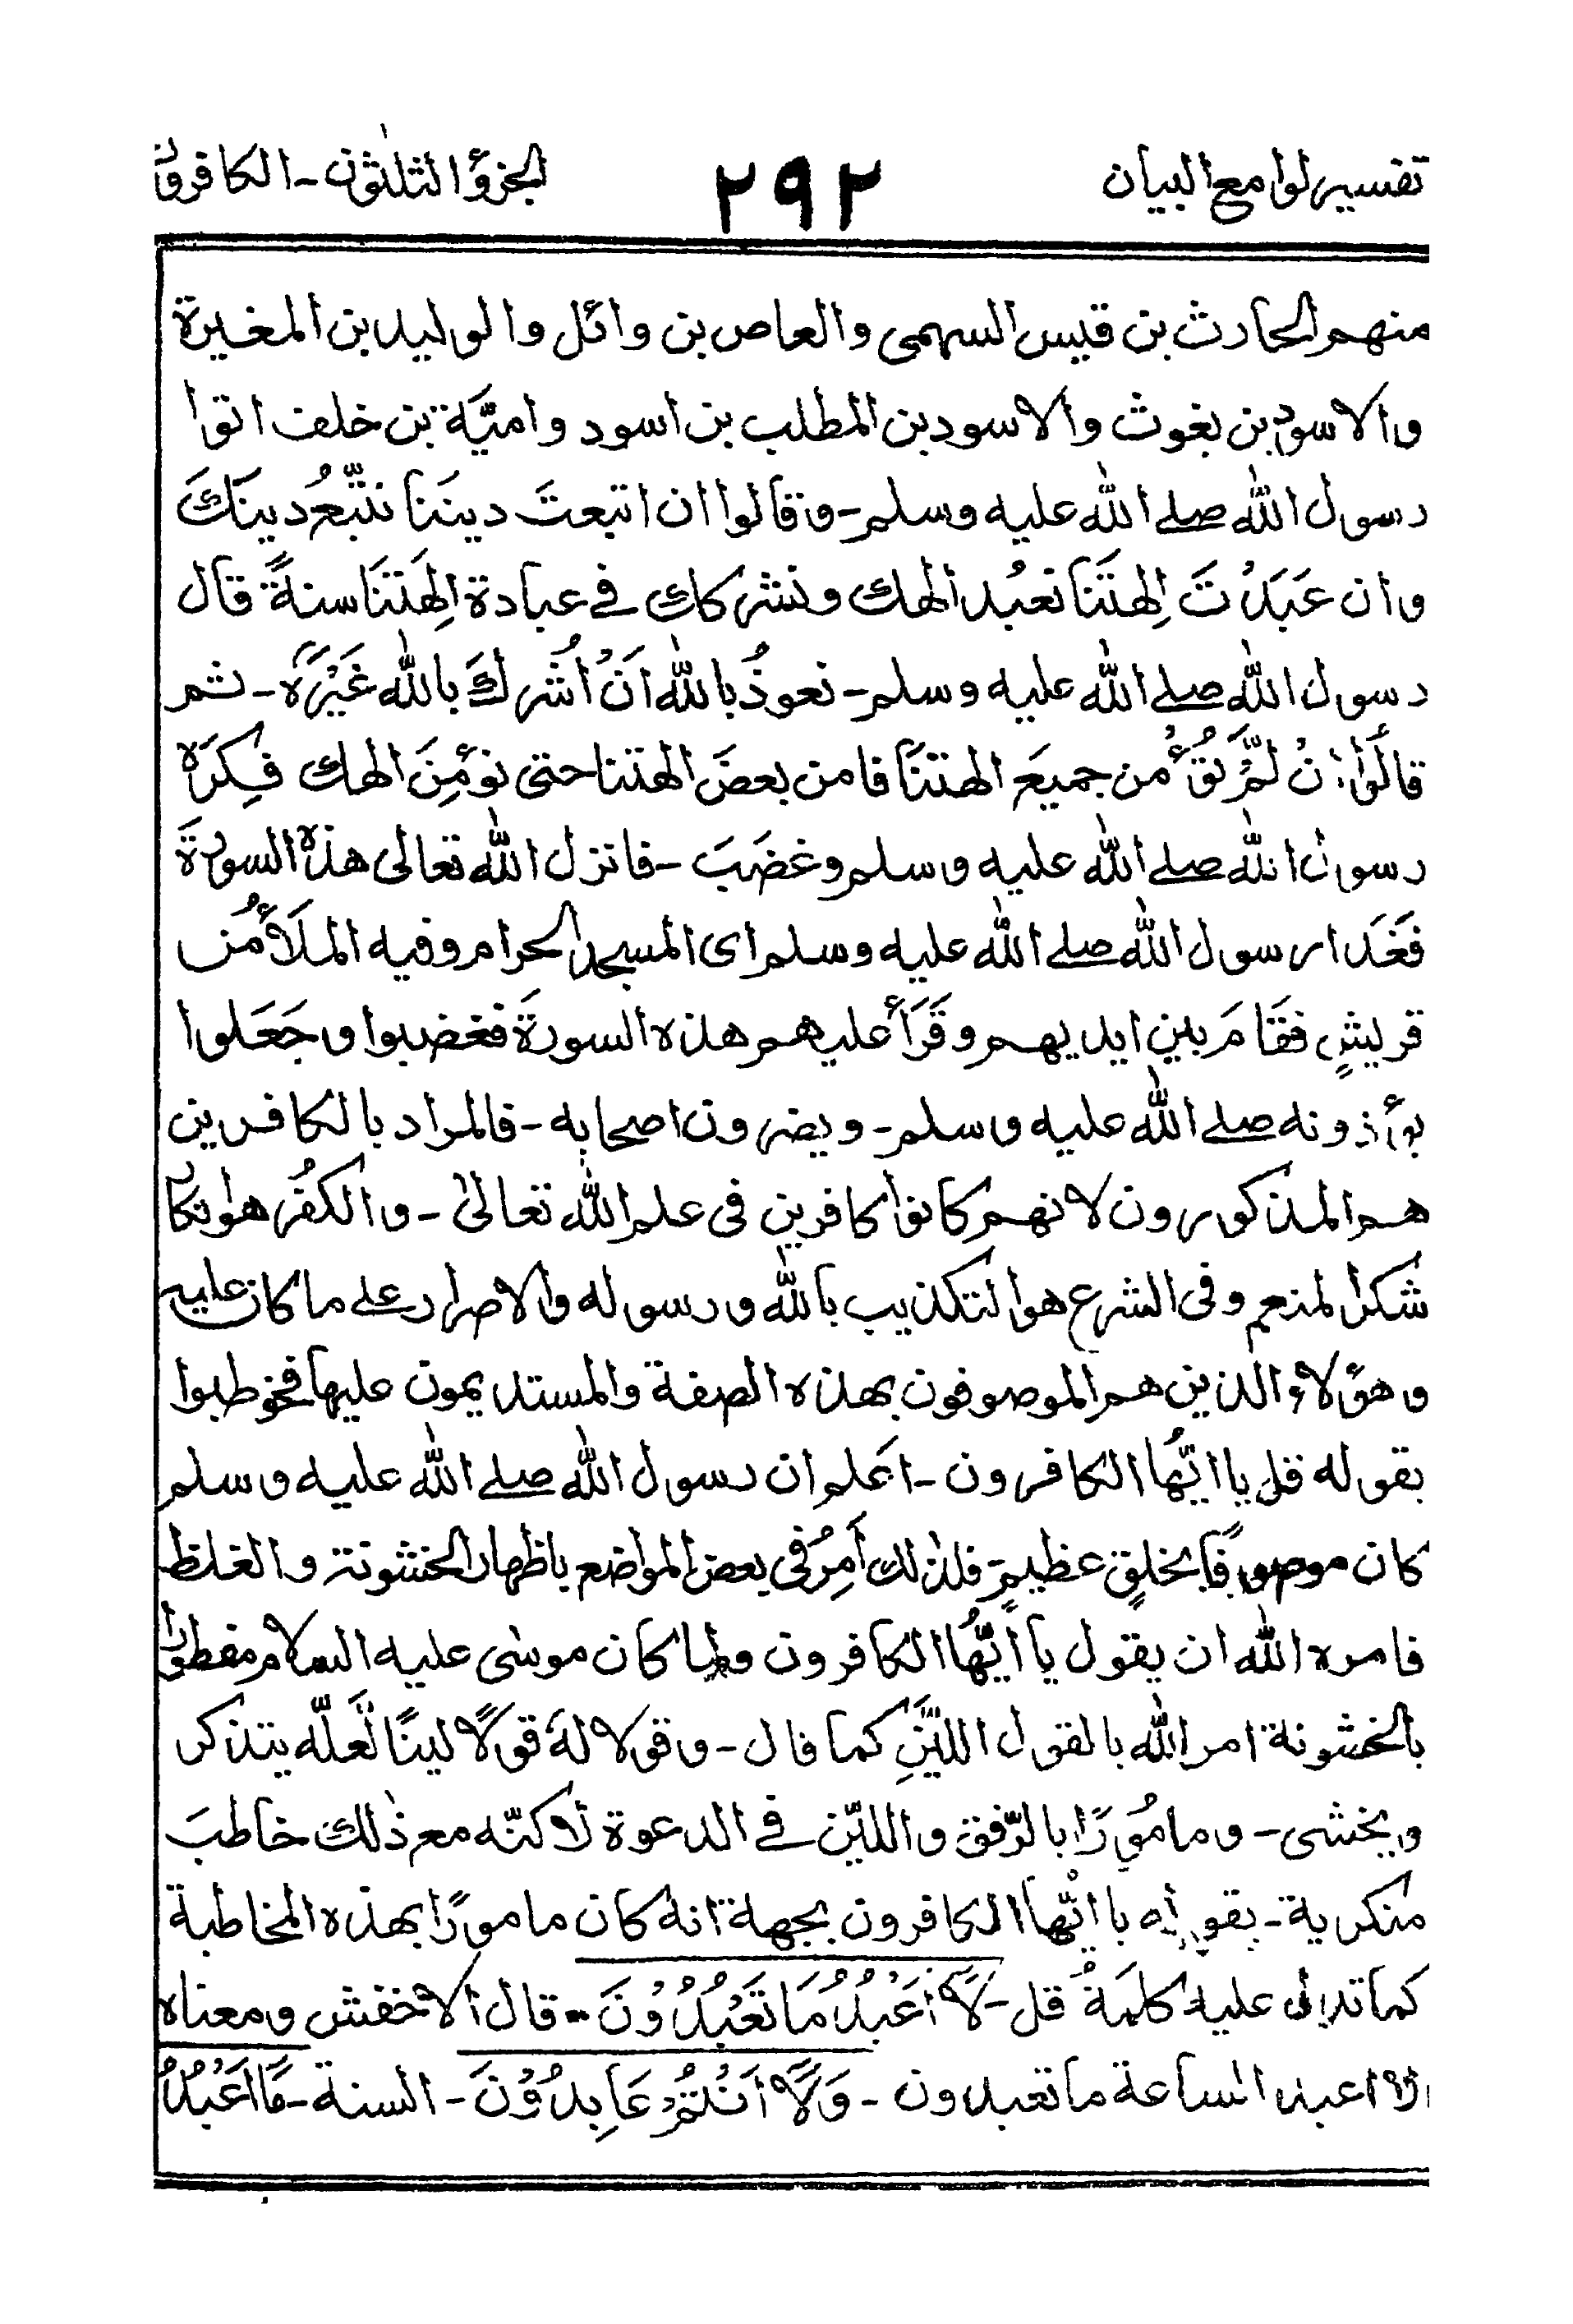 تفسير لوامع البيان ٢٩٢ الجزؤ الثلثون - الكافرون
منهم الحارث بن قيس السهمى والعاص بن وائل والوليد بن المغيرة
والاسود بن يغوث والاسود بن المطلب بن اسود واميّة بن خلف اتوا
رسول الله صلے الله عليه وسلم - وقالوا ان اتبعتَ دينَنا نتّبعُ دينَكَ
وان عَبَدْتَ اِلٰهتَنَا نعبُد الٰهك ونشركك فے عبادة اٰلِهَتنَا سنةً قال
رسول الله صلے الله عليه وسلم - نعوذُ بالله اَنْ اُشْرِكَ بالله غَيْرَهٗ - ثم
قالُوا اِنْ لَمْ تُؤْمن جميعَ الهتنَا فامن بعضَ الهتنا حتى نؤمِنَ الهك فكِرَه
رسول الله صلے الله عليه وسلم وغضَبَ - فانزل الله تعالى هذه السورةَ
فَغَدَا رسول الله صلے الله عليه وسلم اى المسجد الحرام وفيه المَلَأُ من
قريشٍ فقَامَ بين ايديهم وقَرَأَ عليهم هذه السورةَ فغضبوا وجَعَلوا
يؤذونه صلے الله عليه وسلم - ويضرون اصحابه - فالمراد بالكافرين
هم المذكورون لانهم كانوا كافرين فى علم الله تعالىٰ - والكفُر هو انكار
شكر المنعم وفى الشرع هو التكذيب بالله ورسوله والاصرار علے ما كان عليه
وهؤلاء الذين هم الموصوفون بهذه الصفة والمستديمون عليها فخوطبوا
بقوله قل يا ايُّها الكافرون - اعلم ان رسول الله صلے الله عليه وسلم
كان موصوفًا بخلقٍ عظيمٍ فلذلك اُمِرَ فى بعض المواضع باظهار الخشونة والغلظ
فامره الله ان يقول يا أيُّها الكافرون ولما كان موسٰى عليه السلام مفطورا
بالخشونة امر الله بالقول الليّنِ كما قال - وقولا لهٗ قولًا لينًا لَّعلّه يتذكر
ويخشى - ومامُورًا بالرّفق والليّن فے الدعوة لاكنّه مع ذٰلك خاطبَ
منكريه - بقوله يا ايّها الكافرون بجهة انهٗ كان مامورًا بهذه المخاطبة
كما تدل عليه كلمةُ قل - لَآ اَعْبُدُ مَا تَعْبُدُوْنَ - قال الاخفش ومعناه
لا اعبد الساعة ما تعبدون - وَلَآ اَنْتُمْ عَابِدُوْنَ - السنة - مَا اَعْبُدُ